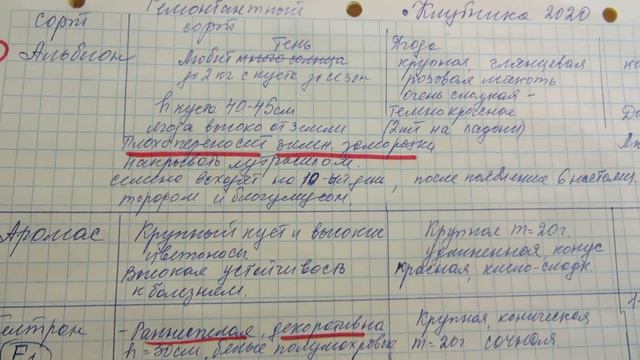 сорт
Ремонтантный
сорт
• Клубника 2020
Альбион
Любит много солнца
Тень
до 2 кг с куста за сезон
h куста 40-45см
ягода высоко от земли
Плохо переносит зимн. заморозки
накрывать
Ягода
крупная глянцевая
розовая мякоть
очень сладкая -
темнокрасная
(2шт на ладони)
семена всходят на 10-ый день, после появление 6 настоящ.
и биогумусом.
Аромас
Крупный куст и высокие
цветоносы.
Высокая устойчивость
к болезням.
Крупная m=20г
удлиненная, конус
красная, кисло-сладк.
- Раннеспелая, декоративна
h=30см, белые полумахровые
Крупная, коническая
m=20г сочная
F1